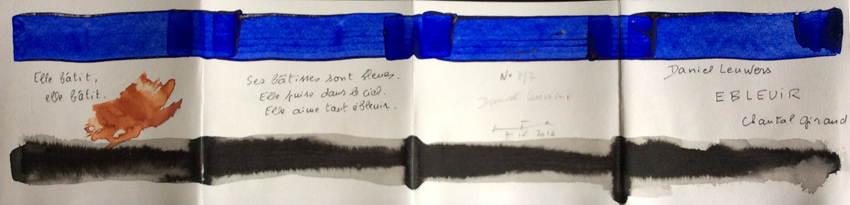 Elle bâtit,
elle bâtit.
Ses bâtisses sont bleues.
Elle puise dans le ciel.
Elle aime tant ébleuir.
No 7/7
Daniel Leuwers
Daniel Leuwers
EBLEUIR
Chantal Giraud